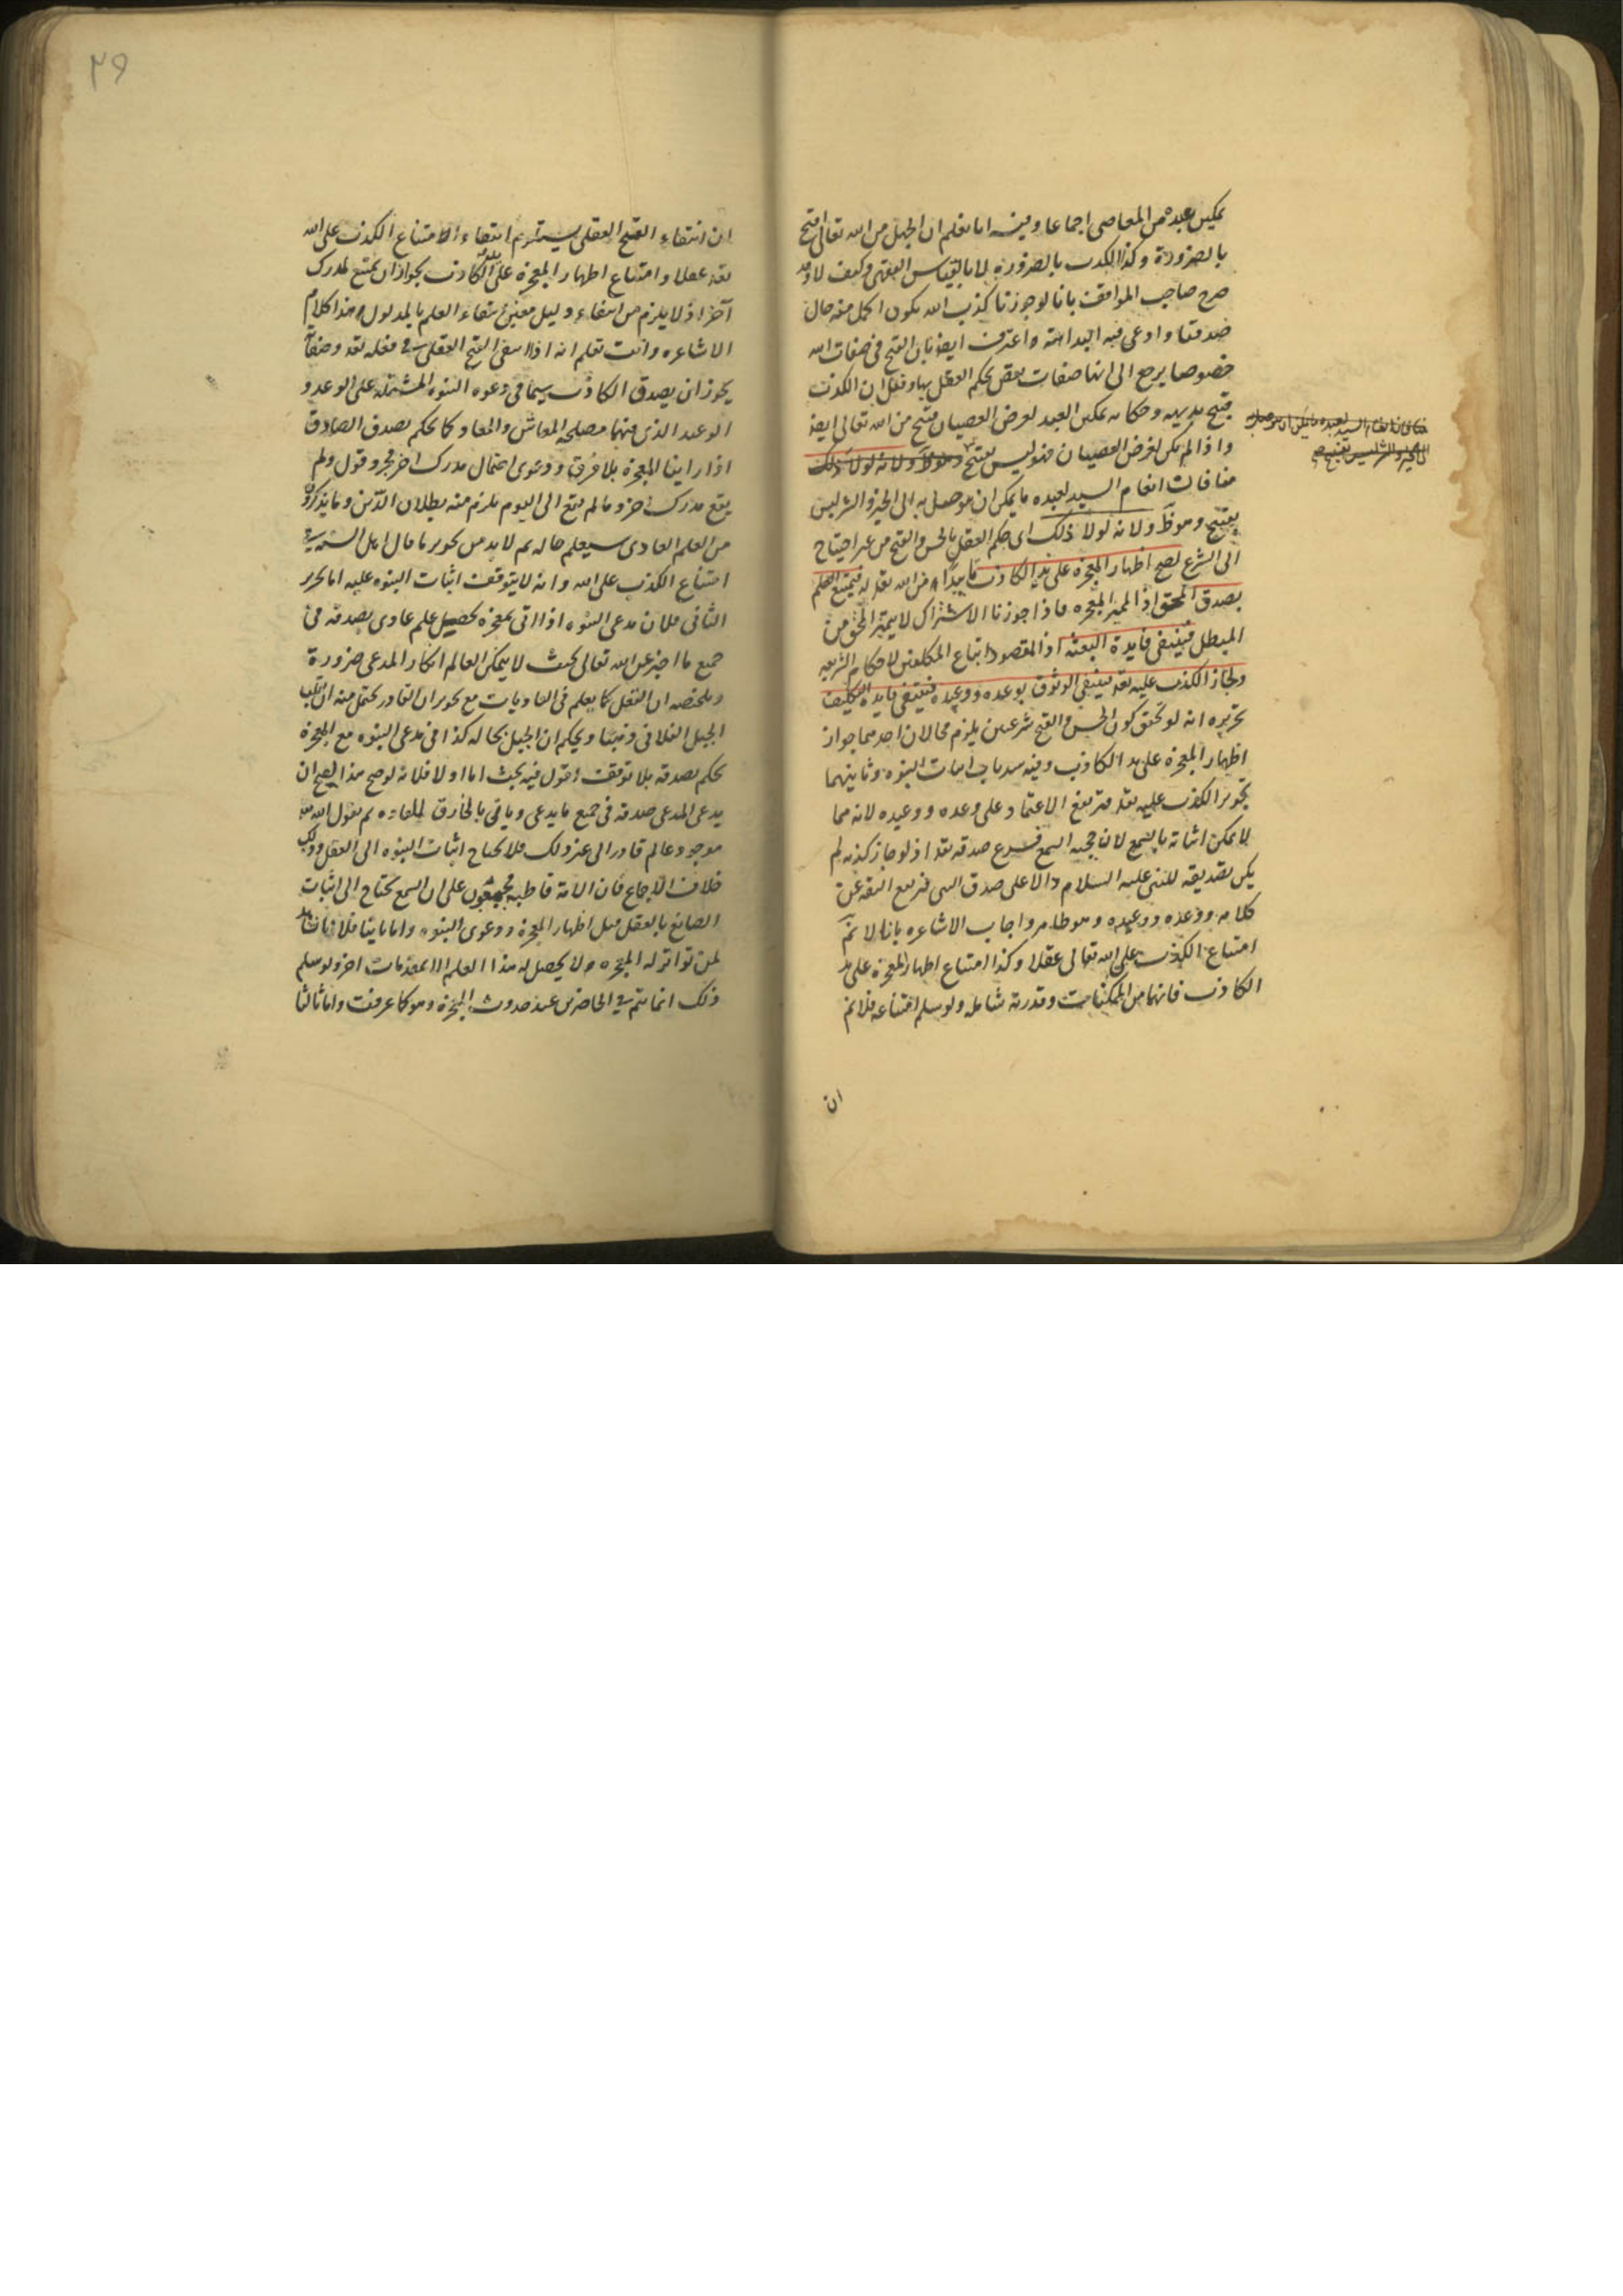 تمكين عبده من المعاصى اجماعا وفيه اما نعلم ان الجهل من الله تعالى قبيح
بالضرورة وكذا الكذب بالضرورة لا بالقياس الفقهى وكيف لا وقد
صرح صاحب المواقف بانا لو جوزنا كذب الله يكون اكمل منه حال
صدقنا وادعى فيه البداهة واعترف ايضا بان القبح فى صفات الله
خصوصا يرجع الى انها صفات نقص يحكم العقل بها ونقل ان الكذب
قبيح بديهه تمكين العبد لغرض العصيان قبيح من الله تعالى ايضا
واذا لم يكن لغرض العصيان فهو ليس بقبيح وهو ظ ولانه لولا ذلك
انعام السيد لعبده ما يمكن ان يوصل به الى الخير والشر ليس
بقبيح وهو ظ ولانه لولا ذلك اى حكم العقل بالحسن والقبح من غير احتياج
الى الشرع لصح اظهار المعجزة على يد الكاذب من الله تعالى فيمتنع العلم
بصدق المحق اذ المميز المعجزه فاذا جوزنا الاشتراك لا يتميز المحق من
المبطل فينتفى فايدة البعثة اذ المقصود اتباع المكلفين لاحكام الشريعه
ولجاز الكذب عليه تعالى فينتفى الوثوق بوعده ووعيده فينتفى فايدة التكليف
تحريره انه لو تحقق كون الحسن والقبح شرعيين يلزم محالان احدهما جواز
اظهار المعجزة على يد الكاذب وفيه سد باب اثبات النبوه وثانيهما
تجويز الكذب عليه تعالى فيرتفع الاعتماد على وعده ووعيده لانه مما
لا يمكن اثباته بالسمع لان حجيه السمع فرع صدقه تعالى اذ لو جاز كذبه لم
يكن تصديقه للنبى عليه السلام دالا على صدق النبى فيرتفع الثقة عن
كلامه ووعده ووعيده وهو ظاهر واجاب الاشاعره بانا لا نم
امتناع الكذب على الله تعالى عقلا وكذا امتناع اظهار المعجزة على يد
الكاذب فانهما من الممكنات وقدرته شامله ولو سلم امتناعه فلا نم
ان
٢٩
ان انتفاء القبح العقلى يستلزم انتفاء الامتناع الكذب على الله
تعالى عقلا وامتناع اظهار المعجزة على يد الكاذب بجواز ان يمتنع لمدرك
آخر اذ لا يلزم من انتفاء دليل معين انتفاء العلم بالمدلول هذا كلام
الاشاعره وانت تعلم انه اذا انتفى القبح العقلى فى فعله تعالى وصفاته
يجوز ان يصدق الكاذب سيما فى دعوه النبوه المشتمله على الوعد و
الوعيد الذى فيهما مصلحه المعاش والمعاد كما يحكم بصدق الصادق
اذا راينا المعجزة بلا فرق ودعوى احتمال مدرك اخر مجرد قول ولم
يقع مدرك اخر وما لم يقع الى اليوم يلزم منه بطلان الدين وما يذكرون
من العلم العادى سيعلم حاله ثم لا بد من تحرير ما قال اهل السنة فى
امتناع الكذب على الله وانه لا يتوقف اثبات النبوه عليه اما تحرير
الثانى فلان مدعى النبوه اذا اتى بمعجزه يحصل علم عادى بصدقه فى
جميع ما اخبر عن الله تعالى بحيث لا يمكن العالم انكار المدعى ضرورة
وملخصه ان العقل كما يعلم فى العاديات مع تجويز ان القادر يحتمل منه ان يقلب
الجبل الفلانى ذهبا ويحكم ان الجبل بحاله كذا فى مدعى النبوه مع المعجزة
يحكم بصدقه بلا توقف اقول فيه بحث اما اولا فلانه لو صح هذا لصح ان
يدعى المدعى صدقه فى جميع ما يدعى وياتى بالخارق للعاده ثم يقول الله
موجود عالم قادر الى غير ذلك فلا يحتاج اثبات النبوه الى العقل وذلك
خلاف الاجماع فان الامة قاطبه مجمعون على ان السمع يحتاج الى اثبات
الصانع بالعقل قبل اظهار المعجزة ودعوى النبوه واما ثانيا فلانا
لمن تواتر له المعجزه ولا يحصل له هذا العلم الا بمقدمات اخر ولو سلم
ذلك انما يتم فى الحاضرين عند حدوث المعجزة وهو كما عرفت واما ثالثا